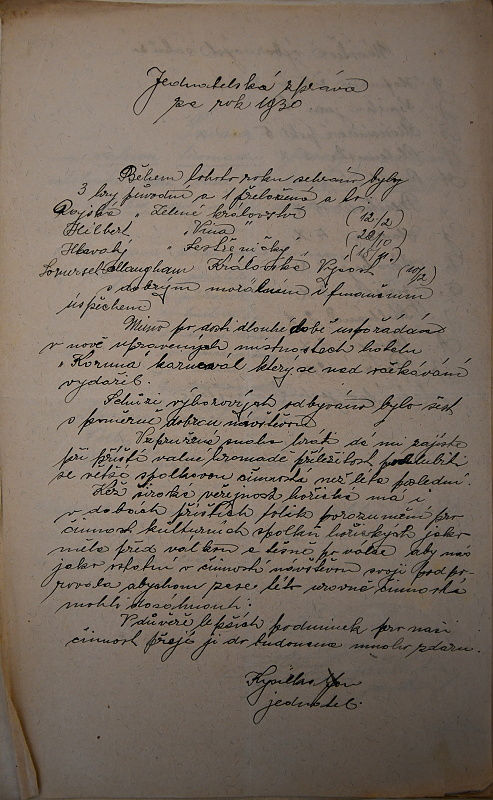 Jednatelská zpráva
za rok 1930
Během tohoto roku sehrány byly
3 hry původní a 1 přeložená a to:
"Zelené království" (12/2)
Hilbert "Vina" (28/10)
Hlavatý "Šestinečky"
Somerset Maugham Královská Výsost (10/12)
s dobrým morálním i finančním
úspěchem
Mimo po dosti dlouhé době uspořádán
v nově upravených místnostech hotelu
"Koruna" karneval který se nad očekávání
vydařil.
Schůzí výborových odbýváno bylo šest
s poměrně dobrou návštěvou
snaha hrát dá mi zajisté
při příští valné hromadě příležitost pochlubiti
se větší spolkovou činností než léta poslední.
Kéž široká veřejnost hořická má i
v dobách příštích tolik porozumění pro
činnost kulturních spolků hořických jako
měla před válkou a těsně po válce aby nás
jako ostatní v činnosti návštěvou svojí podpo-
rovala abychom zase této úrovně činnosti
mohli dosáhnouti.
V důvěře lepších podmínek pro naši
činnost přeji jí do budoucna mnoho zdaru.
jednatel.